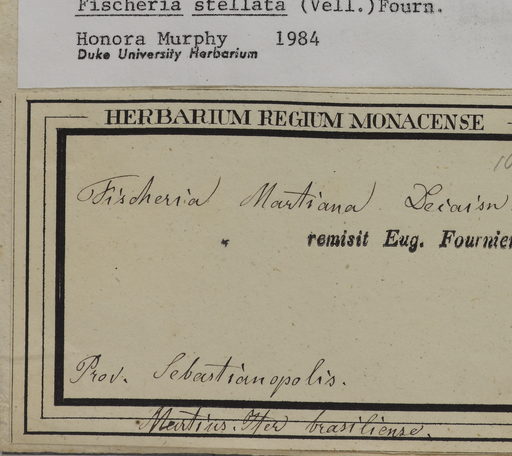 Fischeria stellata (Vell.)Fourn.
Honora Murphy 1984
Duke University Herbarium
HERBARIUM REGIUM MONACENSE
Fischeria Martiana Decaisn
remisit Eug. Fournier
Prov. Sebastianopolis.
Martius. Iter brasiliense.